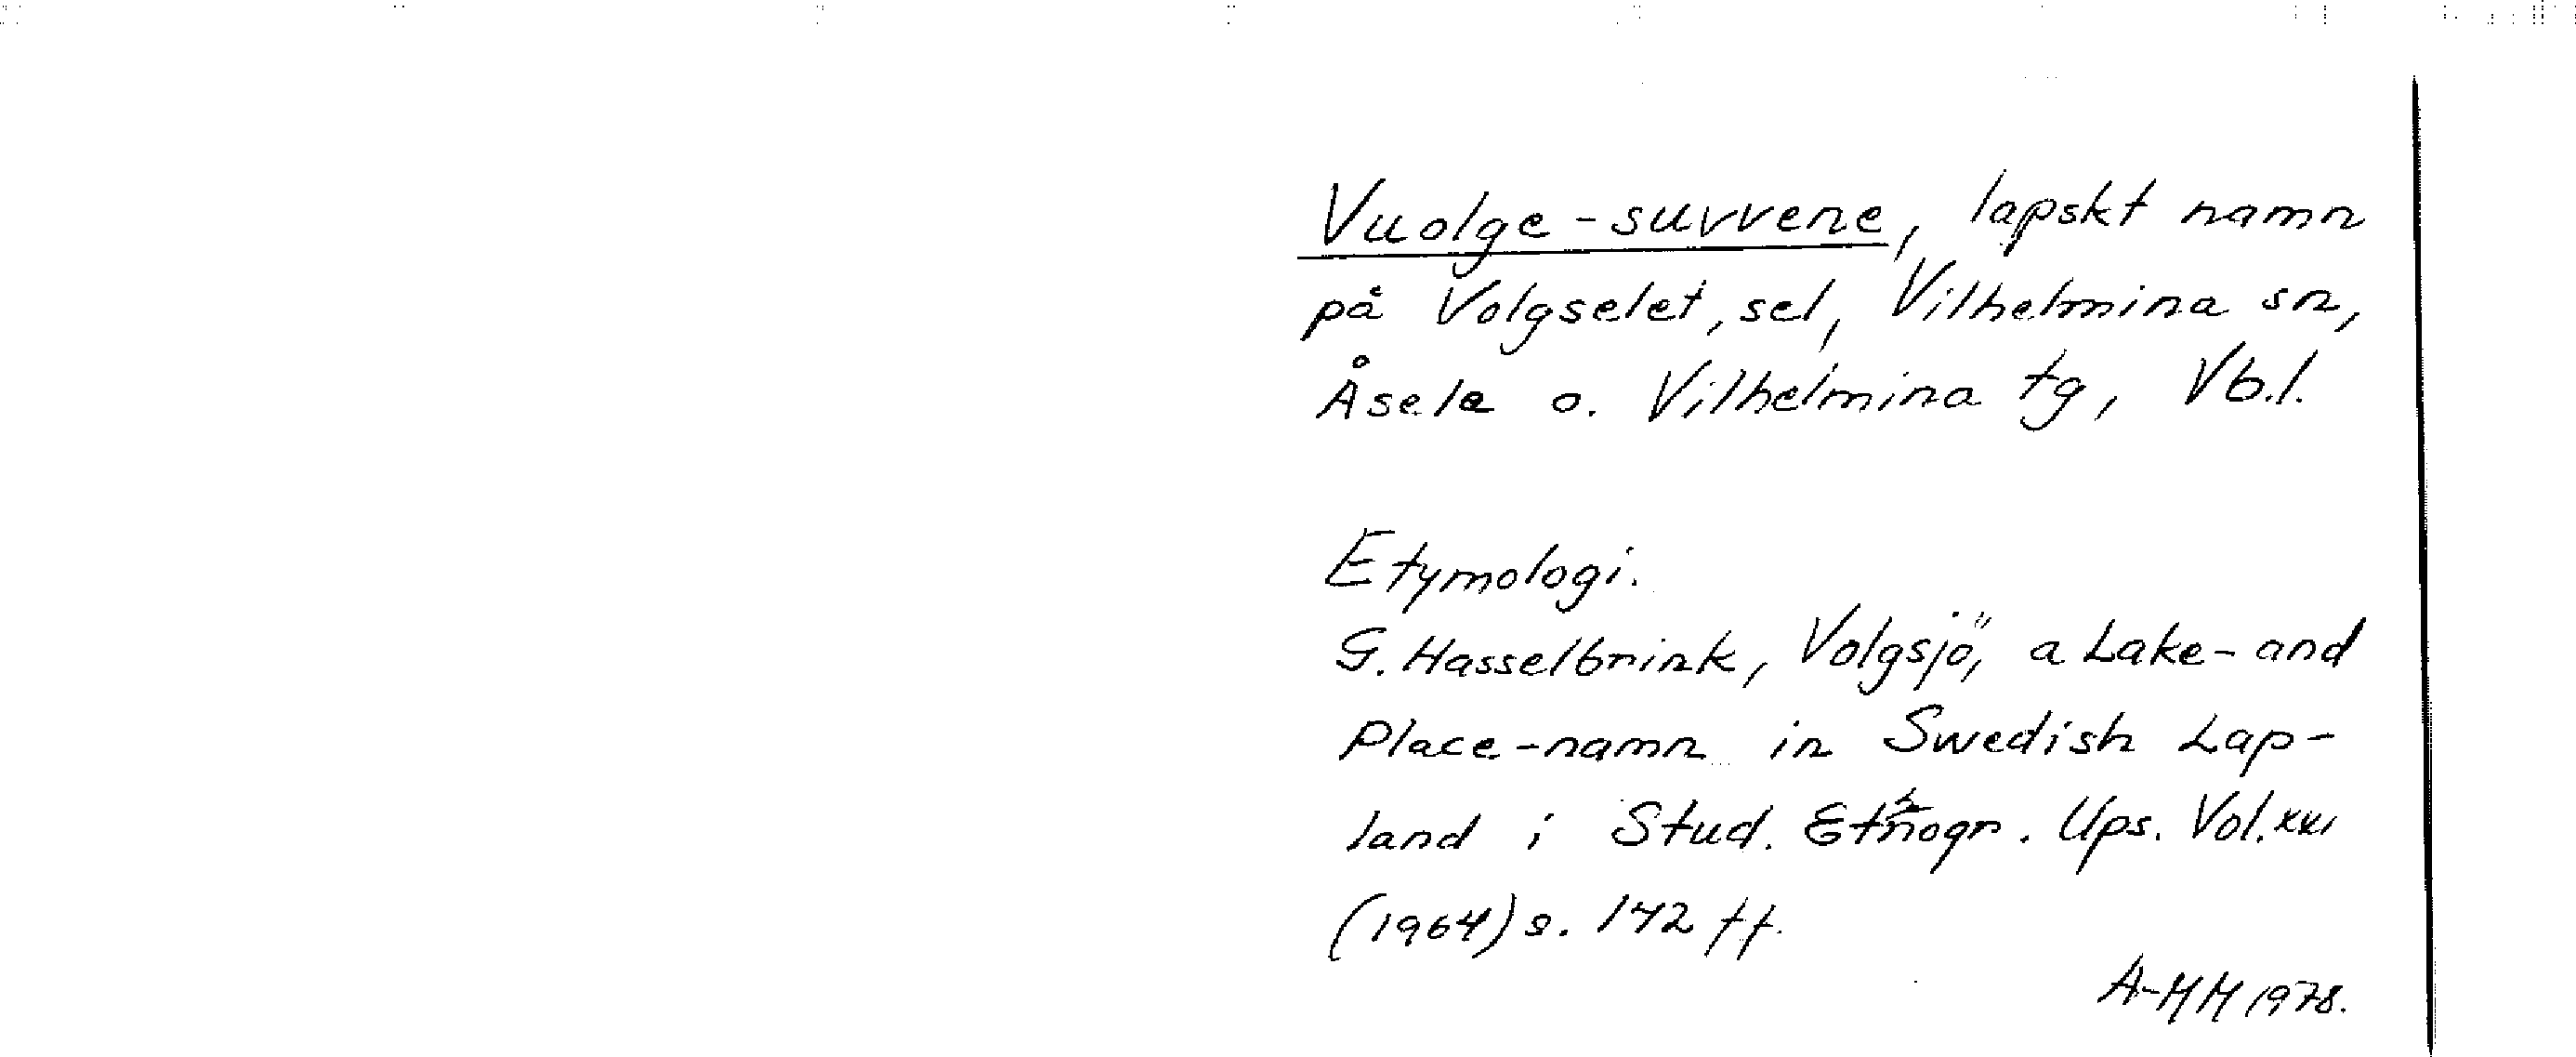 Vuolge-suvvene, lapskt namn
på Volgselet, sel, Vilhelmina sn,
Åsele o. Vilhelmina tg, Vb.l.
Etymologi.
G. Hasselbrink, Volgsjö, a Lake- and
Place-namn in Swedish Lap-
land i Stud. Ethnogr. Ups. Vol. XXI
(1964) s. 142 ff.
A-MM 1978.